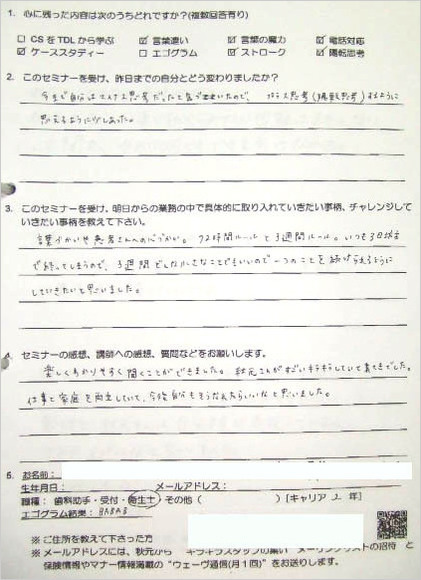 1. 心に残った内容は次のうちどれですか?(複数回答有り)
□ CSをTDLから学ぶ ☑ 言葉遣い ☑ 言葉の魔力 ☑ 電話対応
☑ ケーススタディー □ エゴグラム ☑ ストローク ☑ 陽転思考
2. このセミナーを受け、昨日までの自分とどう変わりましたか?
今まで自分はマイナス思考だったと気づきたいので、プラス思考(陽転思考)するように
思えるように少しあった。
3. このセミナーを受け、明日からの業務の中で具体的に取り入れていきたい事柄、チャレンジして
いきたい事柄を教えて下さい。
言葉づかいや患者さんへの心づかい。72時間ルールと3週間ルール。いつも3日坊主
で終ってしまうので、3週間どんな小さなことでもいいので一つのことを続けらえるように
していきたいと思いました。
4. セミナーの感想、講師への感想、質問などをお願いします。
楽しくわかりやすく聞くことができました。秋元さんがすごいキラキラしていて素てきでした。
仕事と家庭を両立していて、今後自分もそうなれたらいいなと思いました。
5. お名前:
生年月日: メールアドレス:
職種: 歯科助手・受付・衛生士 その他( ) [キャリア 2 年]
エゴグラム結果: BABAB
※ ご住所を教えて下さった方
※ メールアドレスには、秋元から キラキラスタッフの集い メーリングリストの招待 と
保険情報やマナー情報満載の"ウェーヴ通信(月1回)"をお送りします。